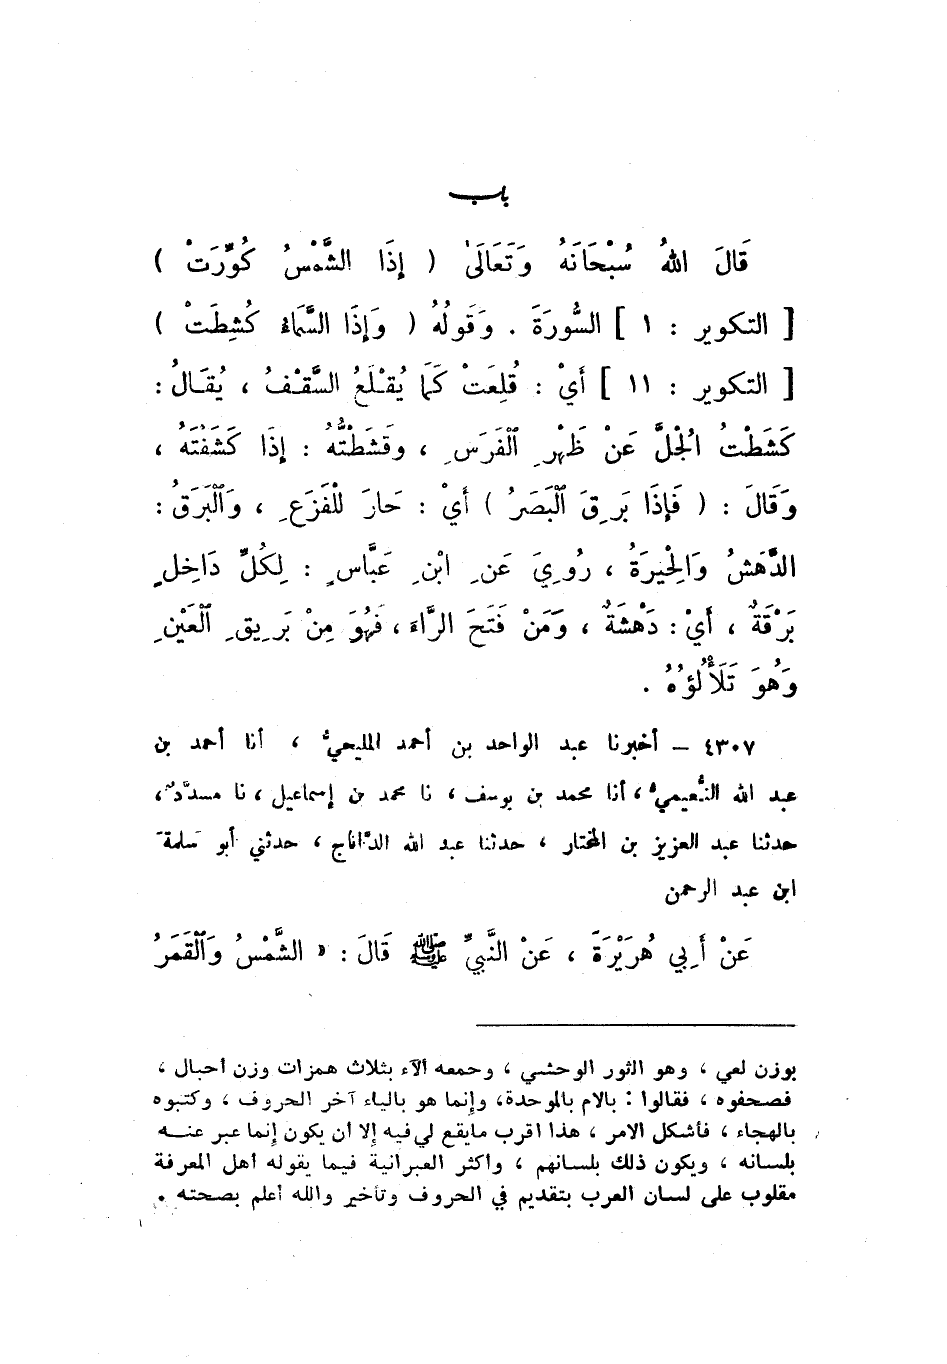 باب
قَالَ اللهُ سُبْحَانَهُ وَتَعَالَىٰ ( إِذَا الشَّمْسُ كُوِّرَتْ )
[ التكوير : ١ ] السُّورَةَ . وَقَوْلُهُ ( وَإِذَا السَّمَاءُ كُشِطَتْ )
[ التكوير : ١١ ] أَيْ : قُلِعَتْ كَمَا يُقْلَعُ السَّقْفُ ، يُقَالُ :
كَشَطْتُ الْجُلَّ عَنْ ظَهْرِ الْفَرَسِ ، وَقَشَطْتُهُ : إِذَا كَشَفْتَهُ ،
وَقَالَ : ( فَإِذَا بَرِقَ الْبَصَرُ ) أَيْ : حَارَ لِلْفَزَعِ ، وَالْبَرَقُ :
الدَّهَشُ وَالْحِيرَةُ ، رُوِيَ عَنِ ابْنِ عَبَّاسٍ : لِكُلِّ دَاخِلٍ
بَرْقَةٌ ، أَيْ : دَهْشَةٌ ، وَمَنْ فَتَحَ الرَّاءَ ، فَهُوَ مِنْ بَرِيقِ الْعَيْنِ
وَهُوَ تَلَأْلُؤُهُ .
٤٣٠٧ – أخبرنا عبد الواحد بن أحمد المليحيُّ ، أنا أحمد بن
عبد الله النُّعيميُّ ، أنا محمد بن يوسف ، نا محمد بن إسماعيل ، نا مسدَّدٌ ،
حدثنا عبد العزيز بن المختار ، حدثنا عبد الله الدَّاناج ، حدثني أبو سَلمةَ
ابن عبد الرحمن
عَنْ أَبِي هُرَيْرَةَ ، عَنْ النَّبِيِّ ﷺ قَالَ : « الشَّمْسُ وَالْقَمَرُ
بوزن لعي ، وهو الثور الوحشي ، وجمعه ألآء بثلاث همزات وزن أحبال ،
فصحفوه ، فقالوا : بالام بالموحدة، وإنما هو بالياء آخر الحروف ، وكتبوه
بالهجاء ، فأشكل الامر ، هذا اقرب مايقع لي فيه إلا أن يكون إنما عبر عنه
بلسانه ، ويكون ذلك بلسانهم ، واكثر العبرانية فيما يقوله أهل المعرفة
مقلوب على لسان العرب بتقديم في الحروف وتأخير والله أعلم بصحته .